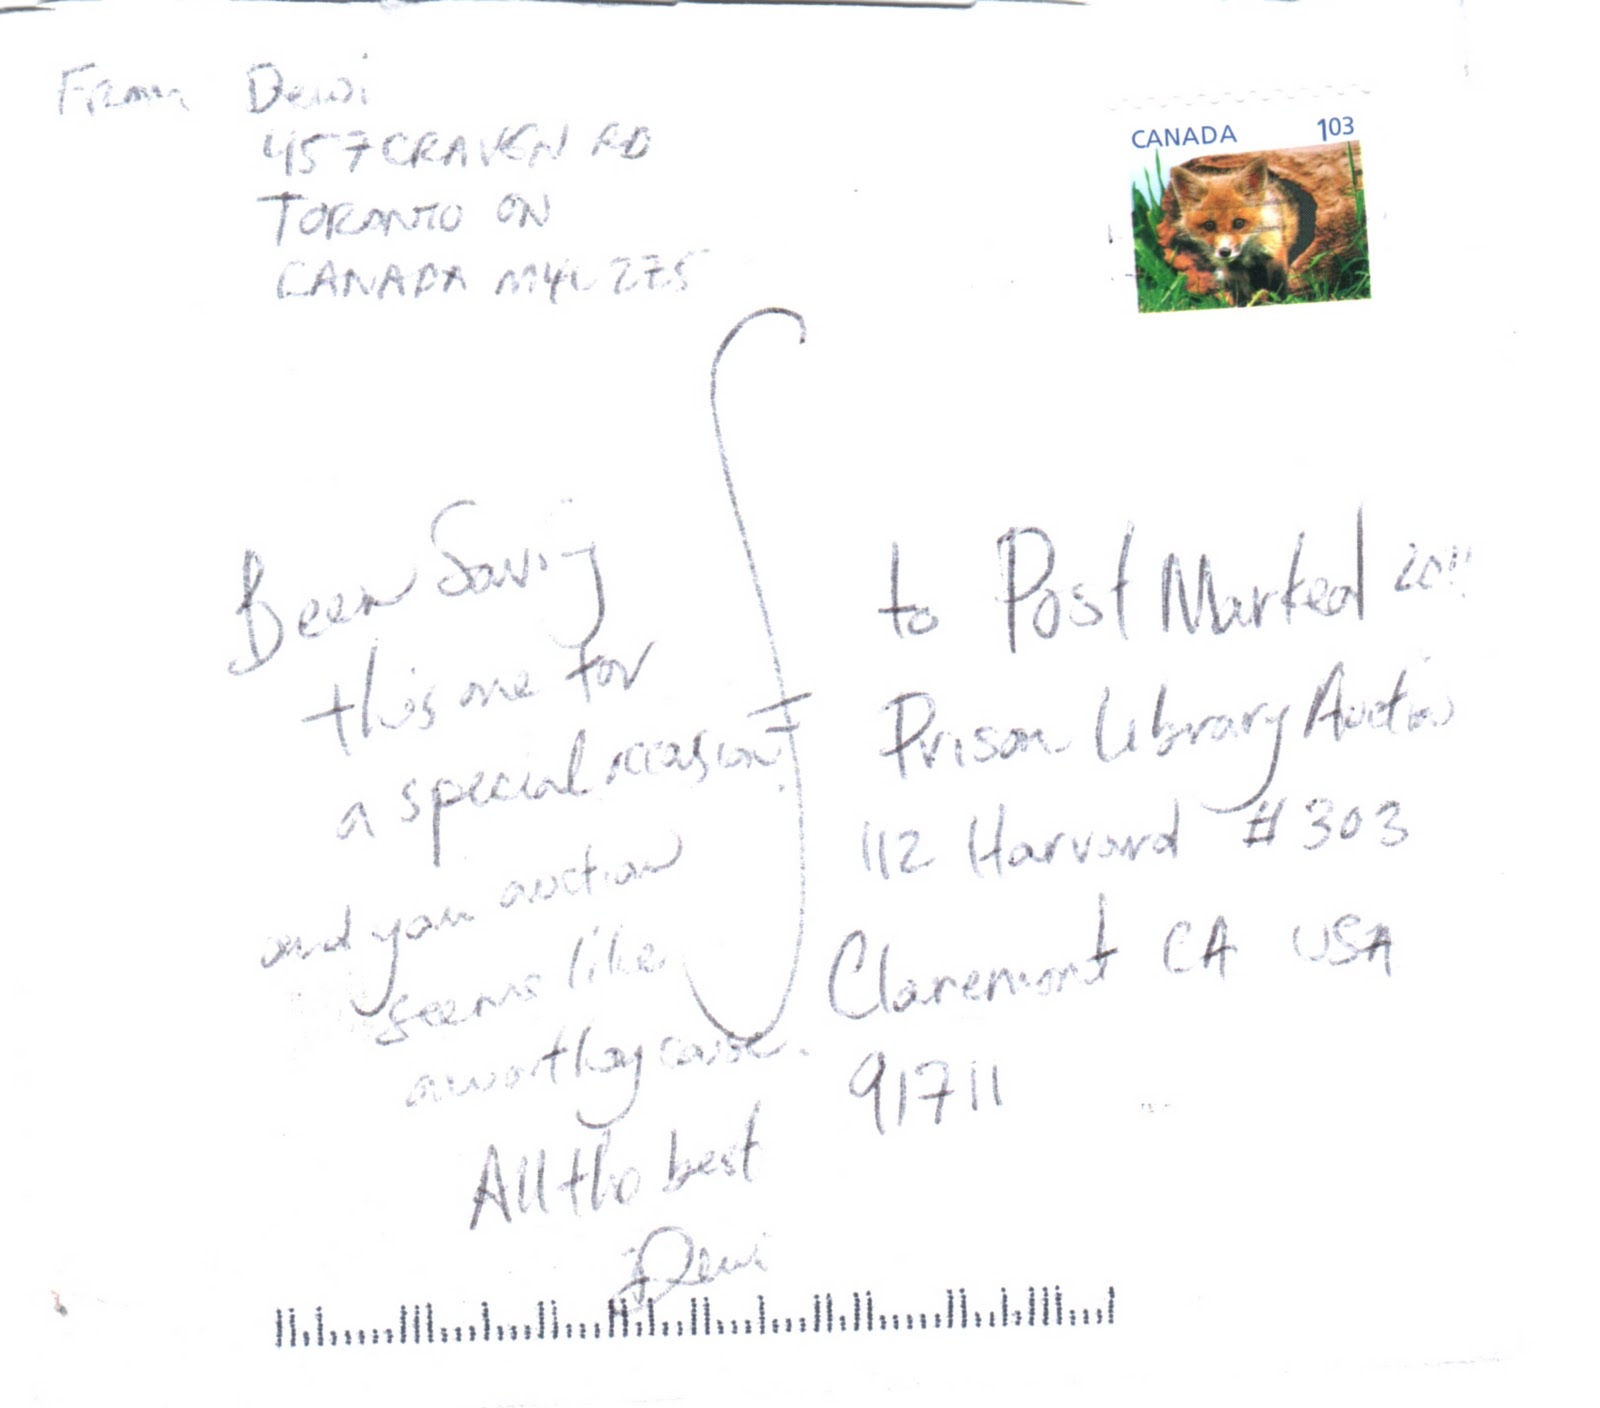 From Dewi
457 CRAVEN RD
TORONTO ON
CANADA M4L 2Z5
CANADA 103
Been Saving
this one for
a special occasion.
and your auction
seems like
a worthy cause.
All the best
Dewi
to Post Marked 2011
Prison Library Auction
112 Harvard #303
Claremont CA USA
91711